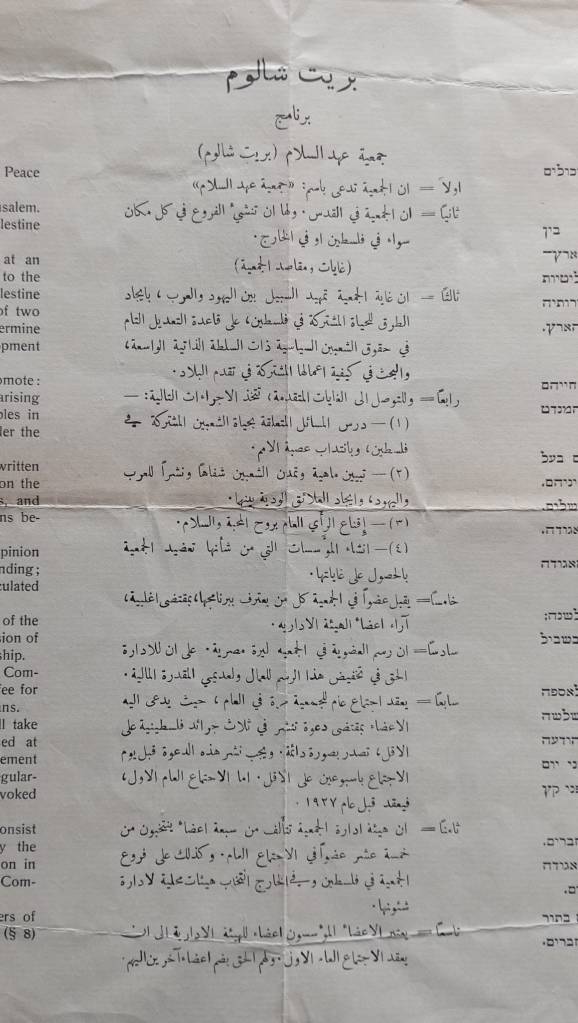 بريت شالوم
برنامج
جمعية عهد السلام (بريت شالوم)
اولاً = ان الجمعية تدعى باسم: «جمعية عهد السلام»
ثانياً = ان الجمعية في القدس. ولها ان تنشئ الفروع في كل مكان
سواء في فلسطين او في الخارج.
(غايات ومقاصد الجمعية)
ثالثاً = ان غاية الجمعية تمهيد السبيل بين اليهود والعرب، بايجاد
الطرق للحياة المشتركة في فلسطين، على قاعدة التعديل التام
في حقوق الشعبين السياسية ذات السلطة الذاتية الواسعة،
والبحث في كيفية اعمالها المشتركة في تقدم البلاد.
رابعاً = وللتوصل الى الغايات المتقدمة، تتخذ الاجراءات التالية: —
(١) — درس المسائل المتعلقة بحياة الشعبين المشتركة في
فلسطين، وبانتداب عصبة الامم.
(٢) — تبيين ماهية وتمدن الشعبين شفاهاً ونشراً للعرب
واليهود، وايجاد العلائق الودية بينها.
(٣) — إقناع الرأي العام بروح المحبة والسلام.
(٤) — انشاء المؤسسات التي من شأنها تعضيد الجمعية
بالحصول على غاياتها.
خامساً = يقبل عضواً في الجمعية كل من يعترف ببرنامجها، بمقتضى اغلبية،
آراء اعضاء الهيئة الاداريه.
سادساً = ان رسم العضوية في الجمعيه ليرة مصرية. على ان للادارة
الحق في تخفيض هذا الرسم للعمال ولعديمي المقدرة المالية.
سابعاً = يعقد اجتماع عام للجمعية مرة في العام، حيث يدعى اليه
الاعضاء بمقتضى دعوة تنشر في ثلاث جرائد فلسطينية على
الاقل، تصدر بصورة دائمة. ويجب نشر هذه الدعوة قبل يوم
الاجتماع باسبوعين على الاقل. اما الاجتماع العام الاول،
فيعقد قبل عام ١٩٢٧.
ثامناً = ان هيئة ادارة الجمعية تتألف من سبعة اعضاء ينتخبون من
خمسة عشر عضواً في الاجتماع العام. وكذلك على فروع
الجمعية في فلسطين وفي الخارج انتخاب هيئات محلية لادارة
شئونها.
تاسعاً = يعتبر الاعضاء المؤسسون اعضاء للهيئة الادارية الى ان
يعقد الاجتماع العام الاول. ولهم الحق بضم اعضاء آخرين اليهم.
Peace
usalem.
lestine
at an
to the
lestine
of two
ermine
opment
omote:
arising
ples in
der the
written
on the
s, and
ns be-
pinion
nding;
culated
of the
sion of
ship.
Com-
fee for
ans.
ll take
sed at
ement
egular-
voked
onsist
y the
on in
Com-
ers of
(§ 8)
יכולים
בין
ארץ–
ליטיות
רותיה
הארץ.
חייהם
המנדט
ם בעל
יניהם.
שלום.
אגודה.
אגודה
לשנה;
בשביל
לאספה
שלשה
הודעה
ני יום
פני קץ
חברים.
אגודה
ם.
בתור
חברים.